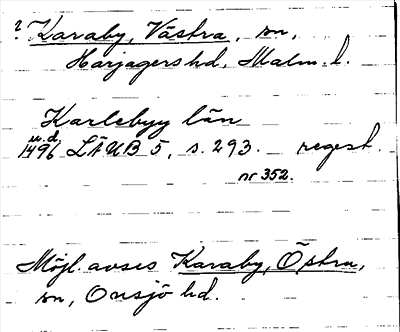 ? Karaby, Västra, sn,
Harjagers hd, Malm. l.
Karlebyy län
u.d.
1496 LÄUB 5, s. 293. regest.
nr 352.
Möjl. avses Karaby, Östra,
sn, Onsjö hd.